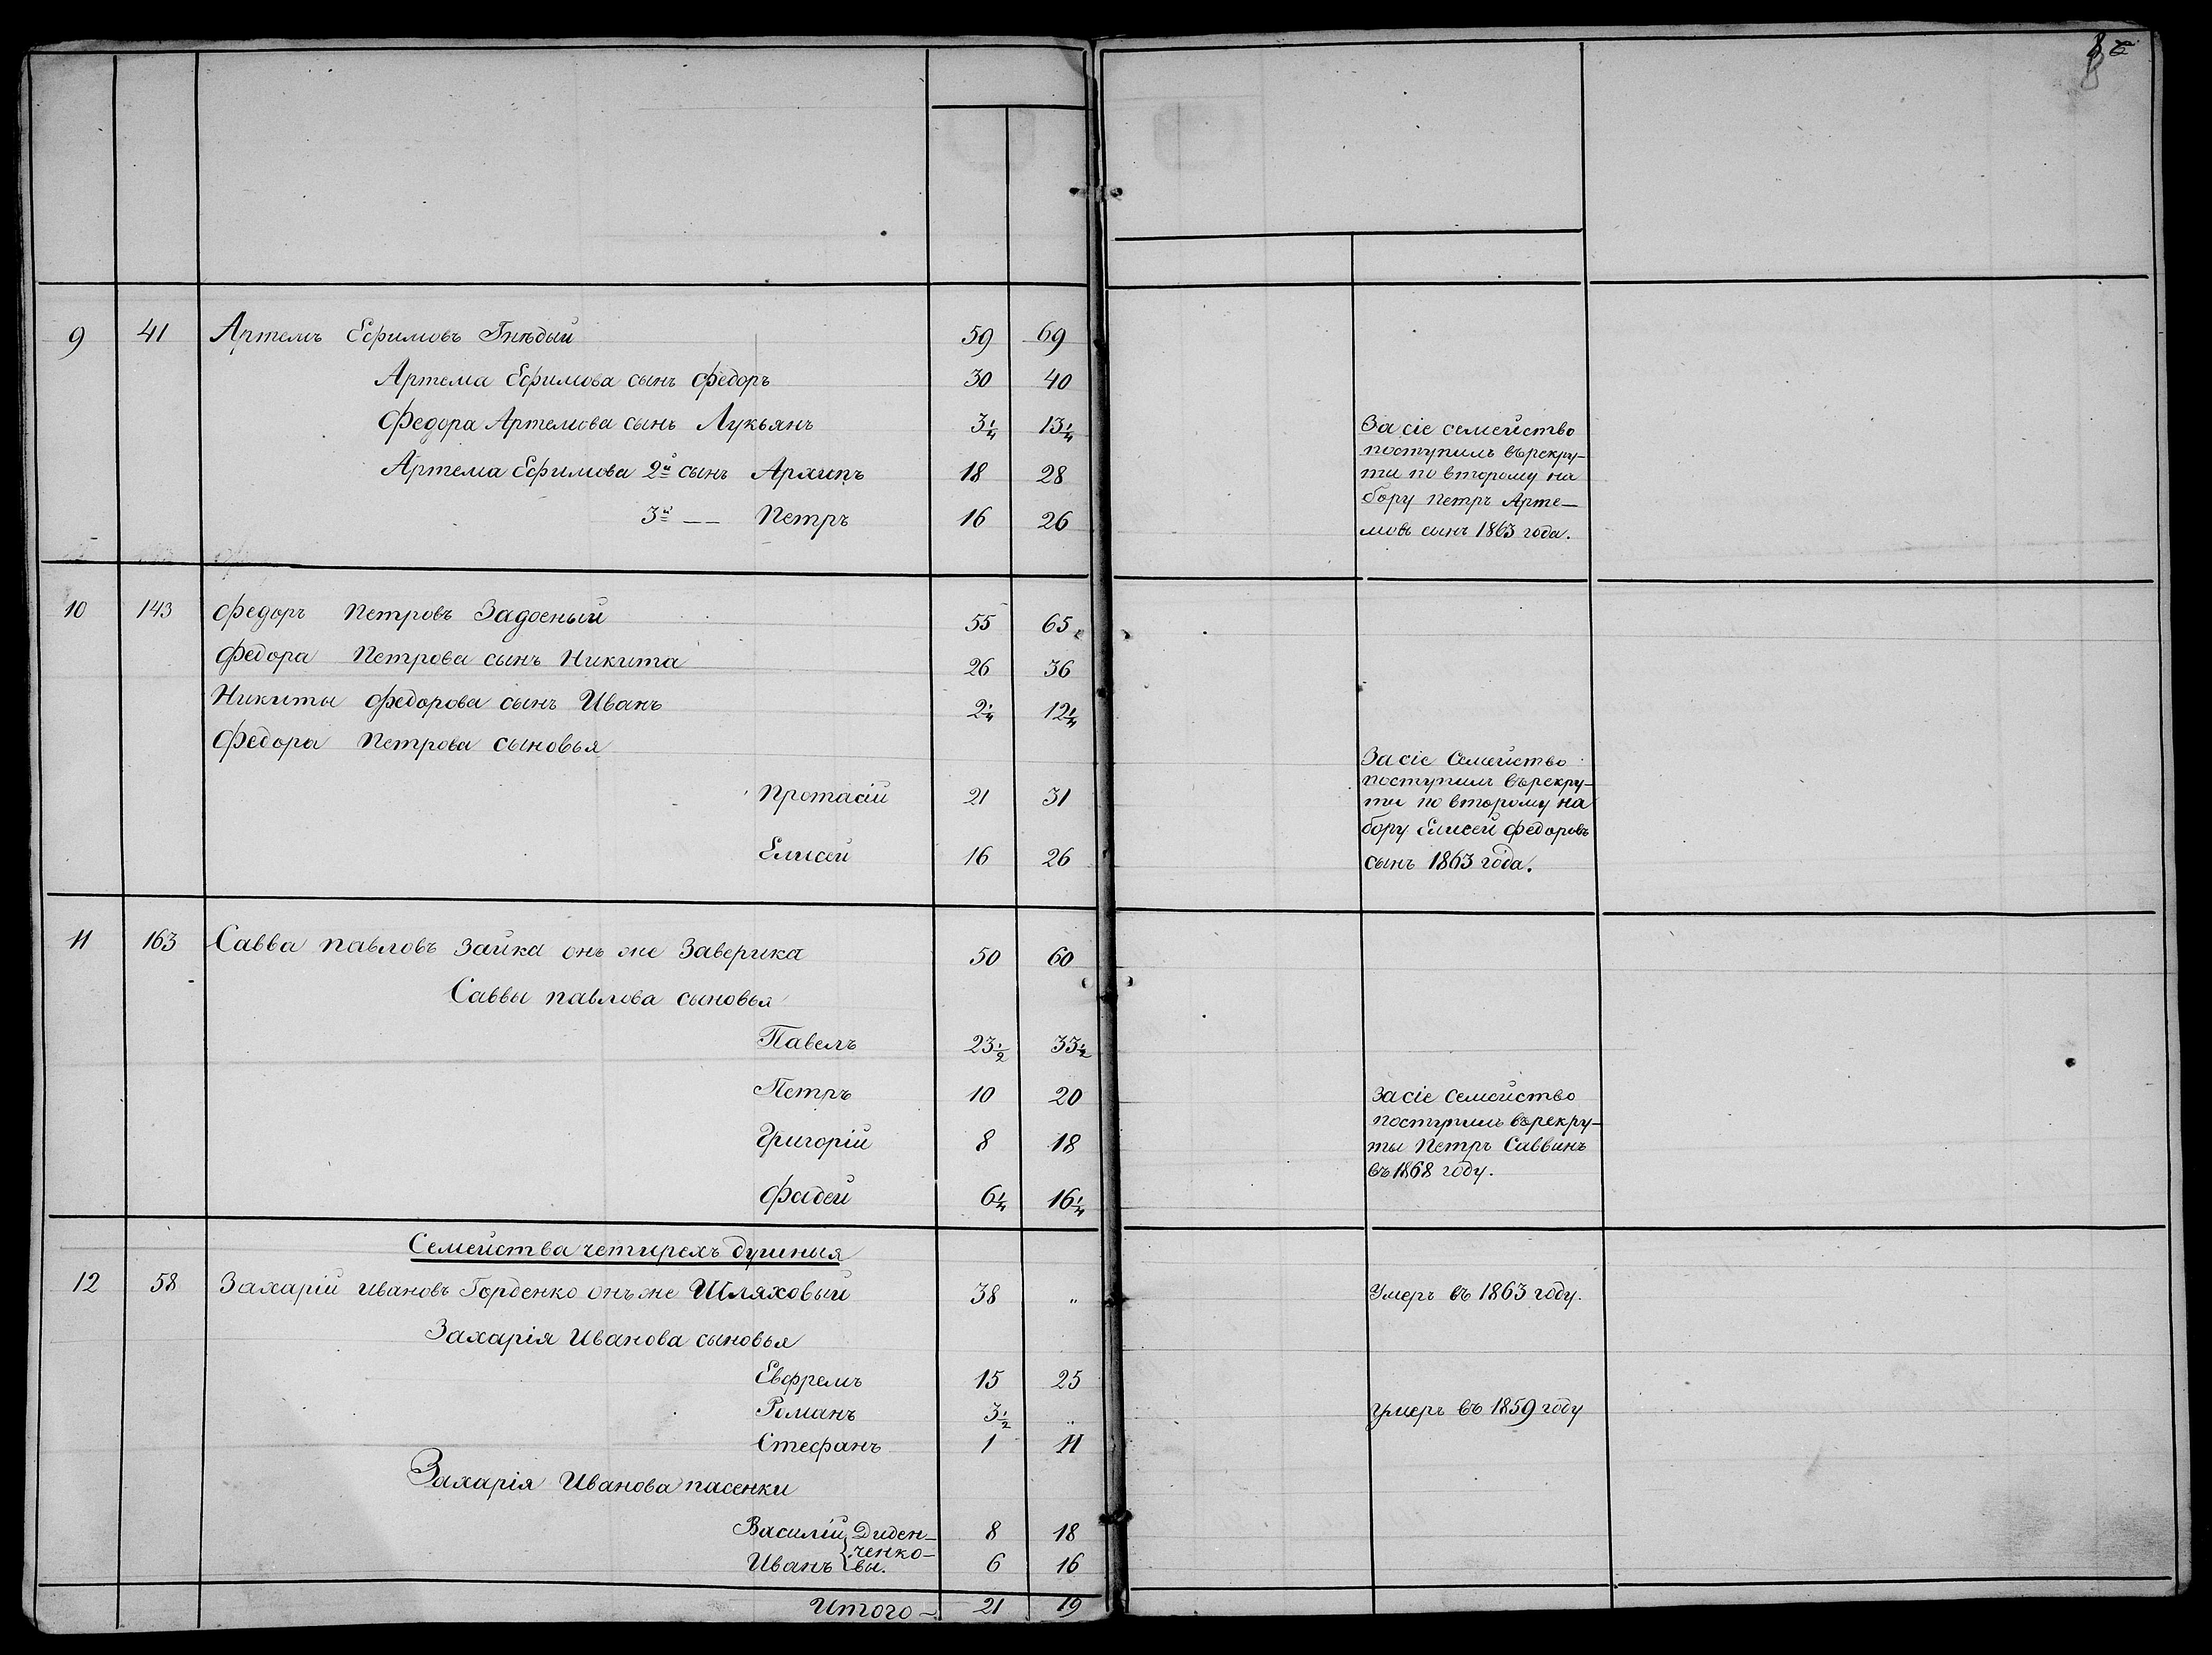 9 41 Артемъ Ефимовъ Гнѣдый 59 69
Артема Ефимова сынъ Федоръ 30 40
Федора Артемова сынъ Лукьянъ 3¼ 13¼
Артема Ефимова 2й сынъ Архипъ 18 28
3й — — Петръ 16 26
За сіе семейство
поступилъ въ рекру-
ты по второму на
бору Петръ Арте-
мовъ сынъ 1863 года.
10 143 Федоръ Петровъ Задоеный 55 65
Федора Петрова сынъ Никита 26 36
Никиты Федорова сынъ Иванъ 2¼ 12¼
Федора Петрова сыновья
Протасій 21 31
Елисей 16 26
За сіе Семейство
поступилъ въ рекру-
ты по второму на
бору Елисей Федоровъ
сынъ 1863 года.
11 163 Савва Павловъ Зайка онъ же Заверика 50 60
Саввы Павлова сыновья
Павелъ 23½ 33½
Петръ 10 20
Григорій 8 18
Фадей 6¼ 16¼
За сіе Семейство
поступилъ въ рекру-
ты Петръ Саввинъ
въ 1868 году.
Семейства четирехъ душныя
12 58 Захарій Ивановъ Горденко онъ же Шляховый 38 „ Умеръ въ 1863 году.
Захарія Иванова сыновья
Евфремъ 15 25
Романъ 3½ „ Умеръ въ 1859 году
Стефанъ 1 11
Захарія Иванова пасенки
Василій Диден-
ченко-
вы.
8 18
Иванъ 6 16
Итого — 21 19